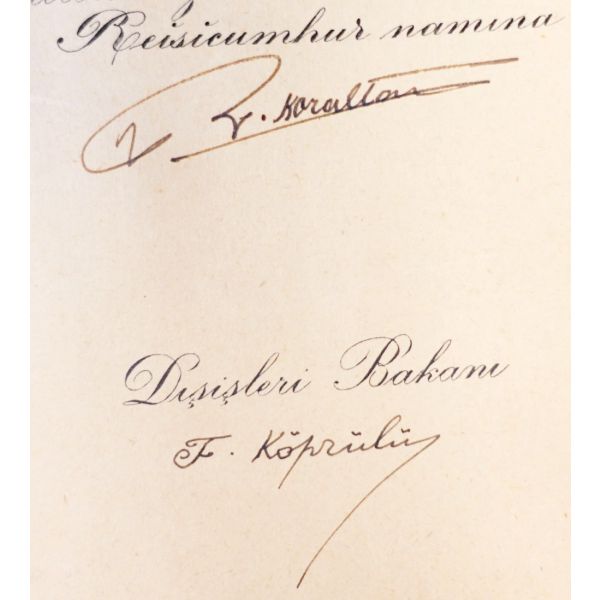 Reisicumhur namına
R. Koraltan
Dışişleri Bakanı
F. Köprülü